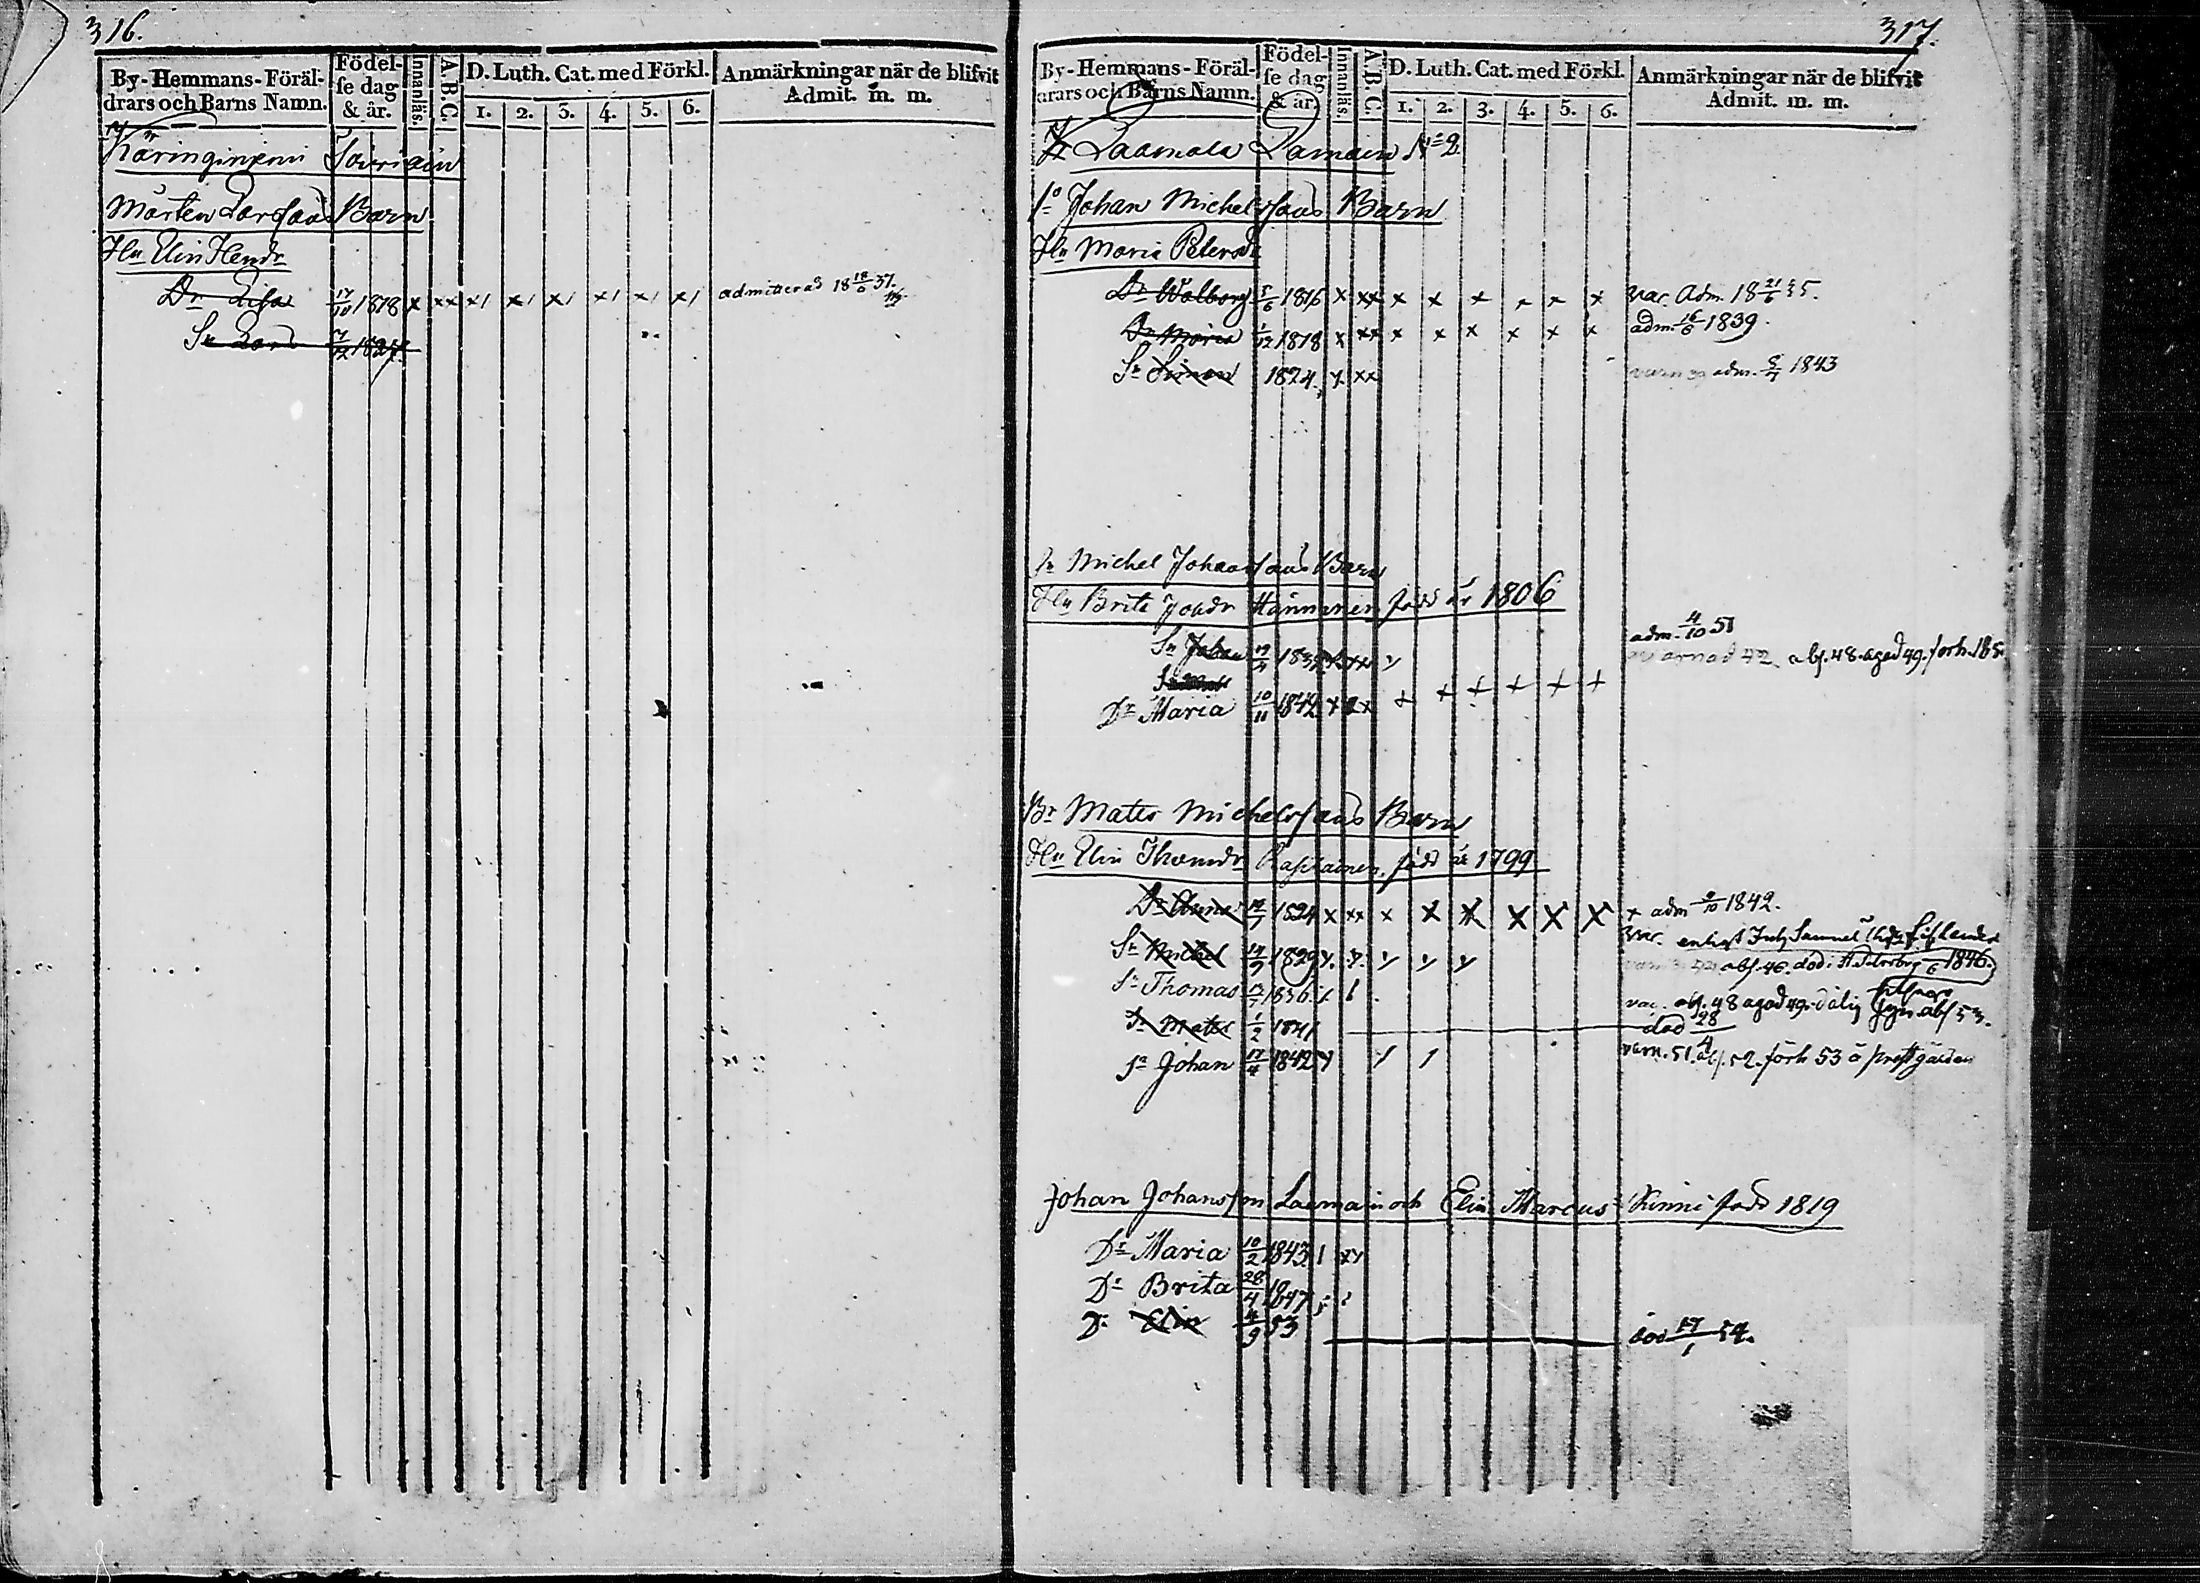 316.
By-Hemmans-Föräl-
drars och Barns Namn.
Födel-
se dag
& år.
Innanläs.
A.B.C.
D. Luth. Cat. med Förkl.
1. 2. 3. 4. 5. 6.
Anmärkningar när de blifvit
Admit. m. m.
Käringiniemi
Mårten Larssons Barn
Hu Elin Hendr
Dr Lisa 17/10 1818 x xx x/ x/ x/ x/ x/ x/ admitterad 18 18/6 37.
Sn Lars 7/12 1827.
317.
By-Hemmans-Föräl-
drars och Barns Namn.
Födel-
se dag
& år.
Innanläs.
A.B.C.
D. Luth. Cat. med Förkl.
1. 2. 3. 4. 5. 6.
Anmärkningar när de blifvit
Admit. m. m.
7 Laamala Lamain No 2
Johan Michelssons Barn
Hu Maria Petersdr
Dr Walborg 5/6 1816 x xx x x x x x x var. Adm. 18 21/6 35.
Dr Maria 1/12 1818 x xx x x x x x x adm. 16/6 1839.
Sn Simon 1824. x xx adm. 8/7 1843
Sn Michel Johanssons Barn
Hu Brita Joh.dr Hänninen född år 1806
Sn Johan adm. 4/10 51
warnad 42. abs. 48. agad 49. förh. 185
Dr Maria 10/11 1842 x xx x x x x x x
Br Mats Michelssons Barn
Hu Elin Thomdr född år 1799
Dr Anna 1824 x xx x x x x x x x adm 9/10 1842.
Sn Michel 14/9 1829 var. enligt
abs. 46. död i St Petersburg 1846.
Sn Thomas 1836 var. abs. 48 agad 49. dålig abs 53.
Sn Mats 1/2 1841 död 28/4
Sn Johan 17/4 1842 varn. 51. abs. 52. förh 53 å prestgården
Johan Johansson Laamain och Elin Marcusdr Kinni född 1819
Dr Maria 10/2 1843 1 xx
Dr Brita 28/4 1847
Dr Elin 4/9 53 död 17/1 54.